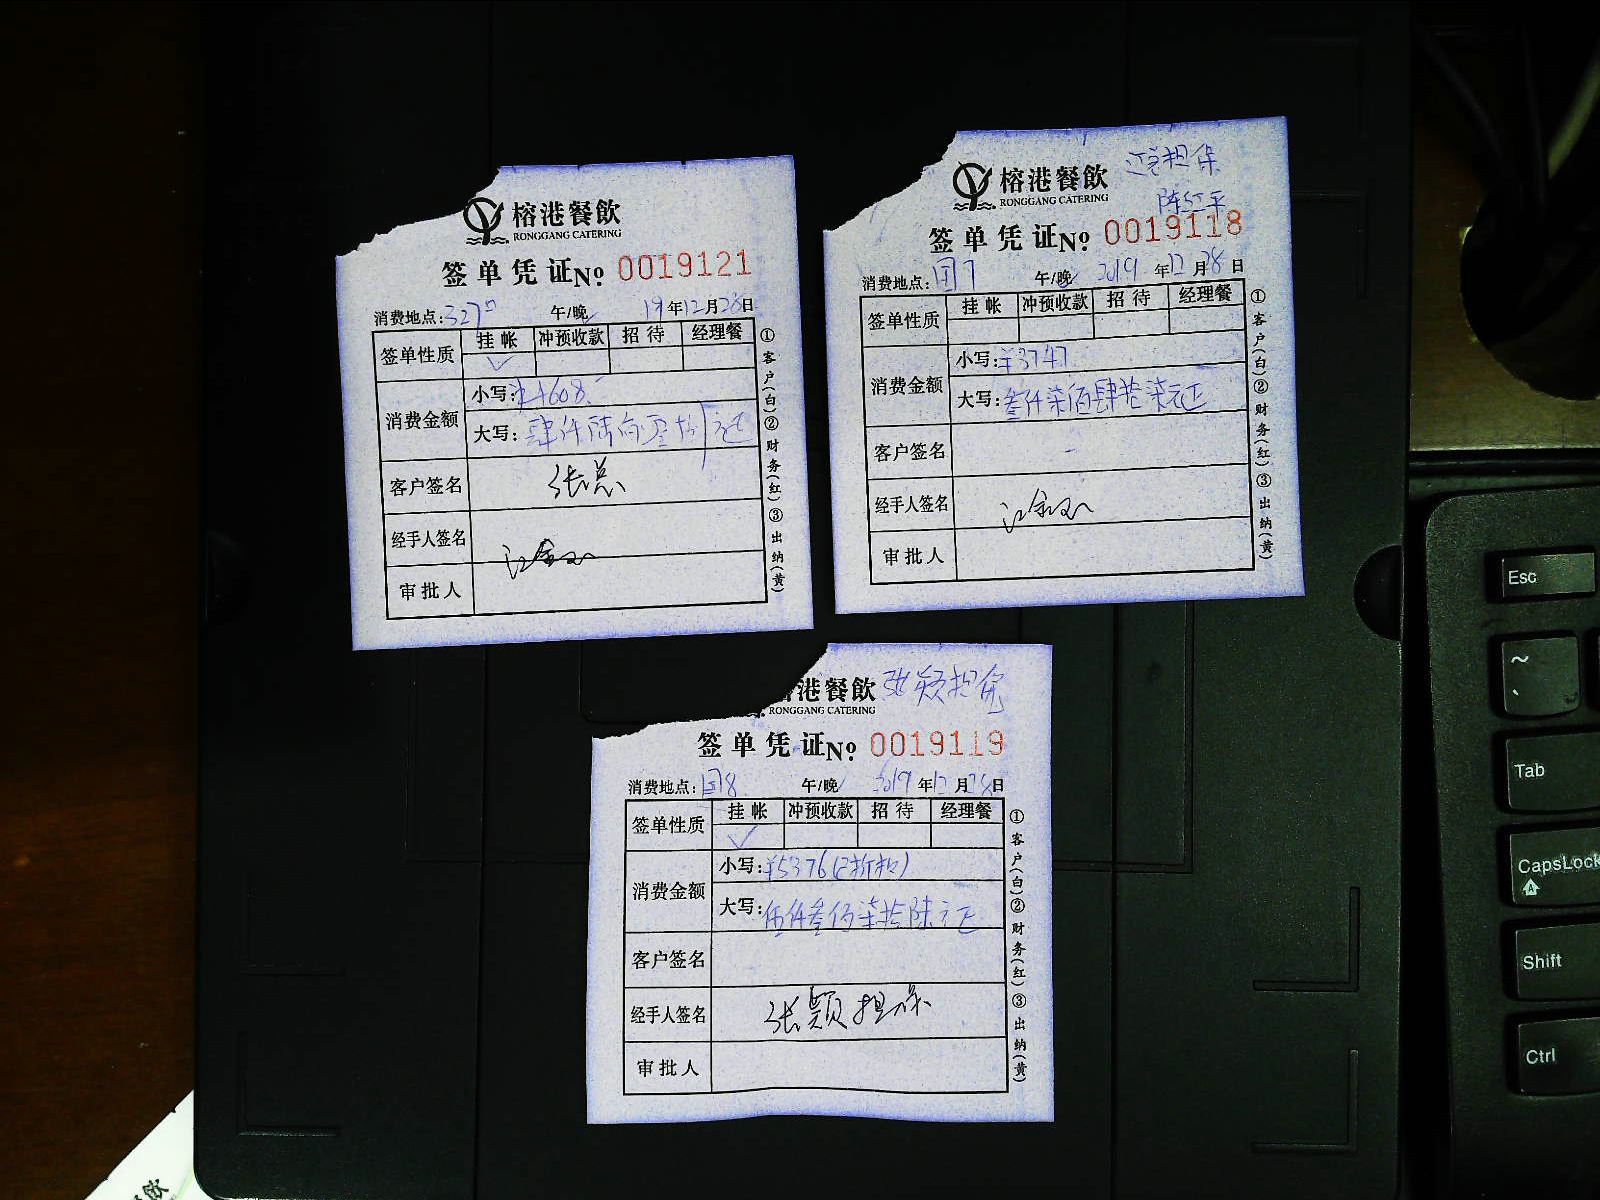 榕港餐飲
RONGGANG CATERING
签单凭证 No 0019121
消费地点: 327 午/晚 19年12月28日
签单性质 挂帐 冲预收款 招待 经理餐
✓
消费金额 小写: ¥4608.
大写: 肆仟陆佰零捌元正
客户签名 张总
经手人签名
审批人
①客户(白)②财务(红)③出纳(黄)
担保
陈红平
榕港餐飲
RONGGANG CATERING
签单凭证 No 0019118
消费地点: 国7 午/晚 2019年12月28日
签单性质 挂帐 冲预收款 招待 经理餐
消费金额 小写: ¥3747
大写: 叁仟柒佰肆拾柒元正
客户签名
经手人签名
审批人
①客户(白)②财务(红)③出纳(黄)
港餐飲 张颖担保
RONGGANG CATERING
签单凭证 No 0019119
消费地点: 国8 午/晚 2019年12月28日
签单性质 挂帐 冲预收款 招待 经理餐
✓
消费金额 小写: ¥5376(折扣)
大写: 伍仟叁佰柒拾陆元正
客户签名
经手人签名 张颖担保
审批人
①客户(白)②财务(红)③出纳(黄)
Esc
~
Tab
CapsLock
Shift
Ctrl
餐飲